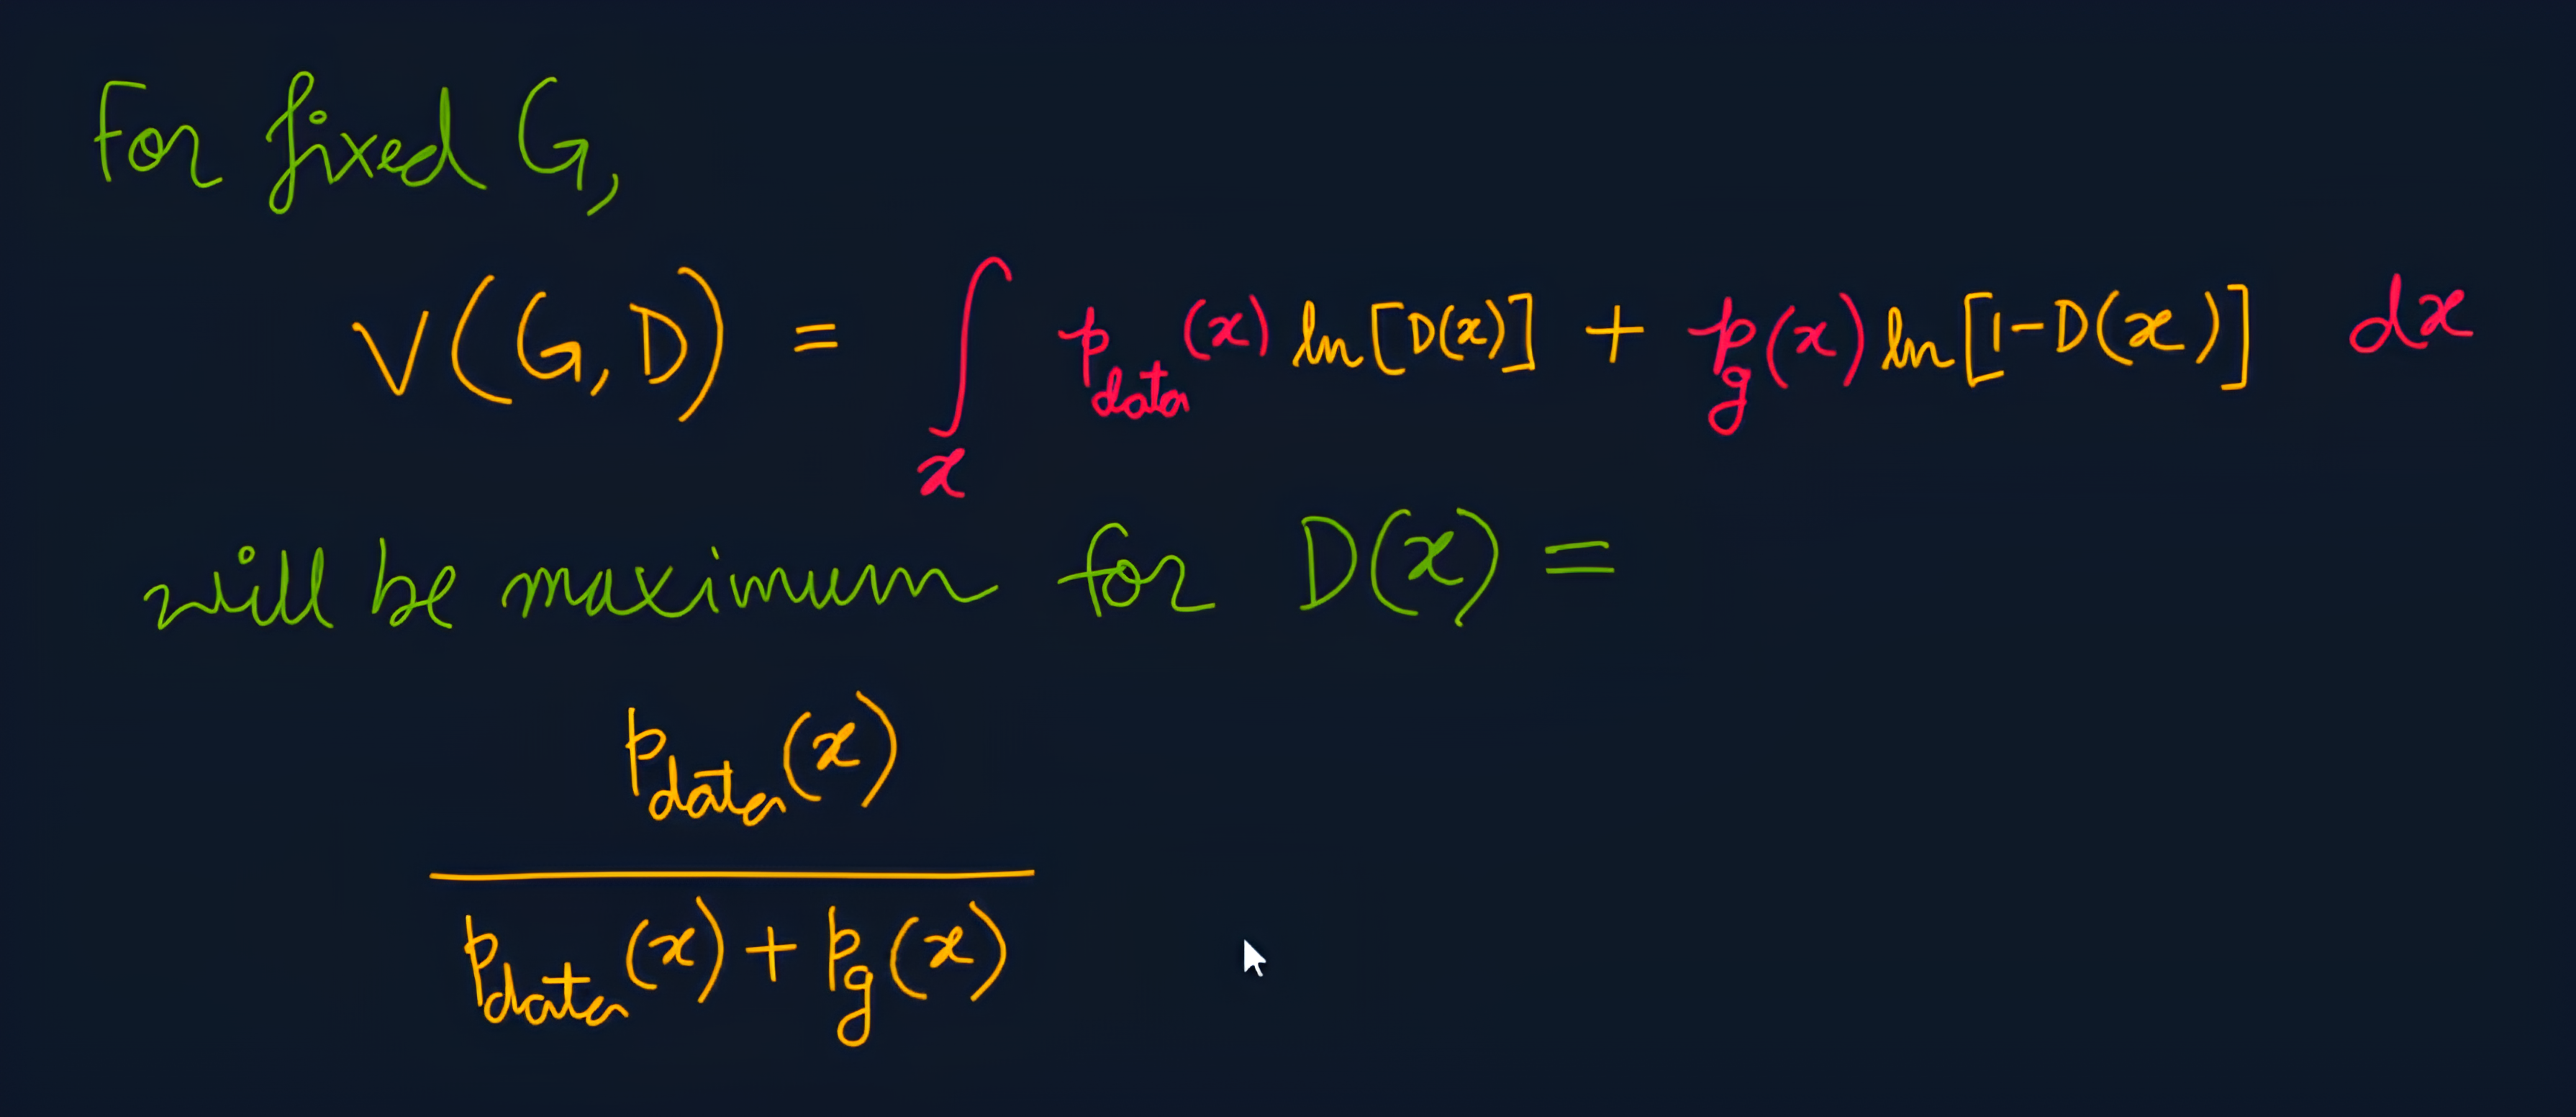 For fixed G,
V(G,D) = ∫ₓ p_data(x) ln[D(x)] + p_g(x) ln[1-D(x)] dx
will be maximum for D(x) =
p_data(x)
p_data(x) + p_g(x)